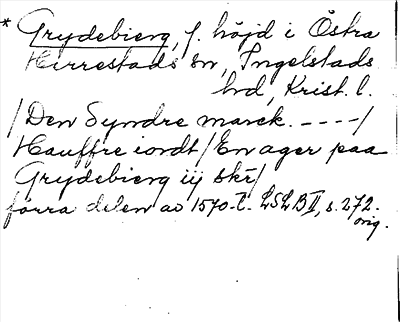 * Grydebierg, f. höjd i Östra
Herrestads sn, Ingelstads
hd, Krist. l.
/Den Syndre marck. ----/
Hauffre iordt/En ager paa
Grydebierg iij skr/
förra delen av 1570-t. LSLB II, s. 272.
orig.